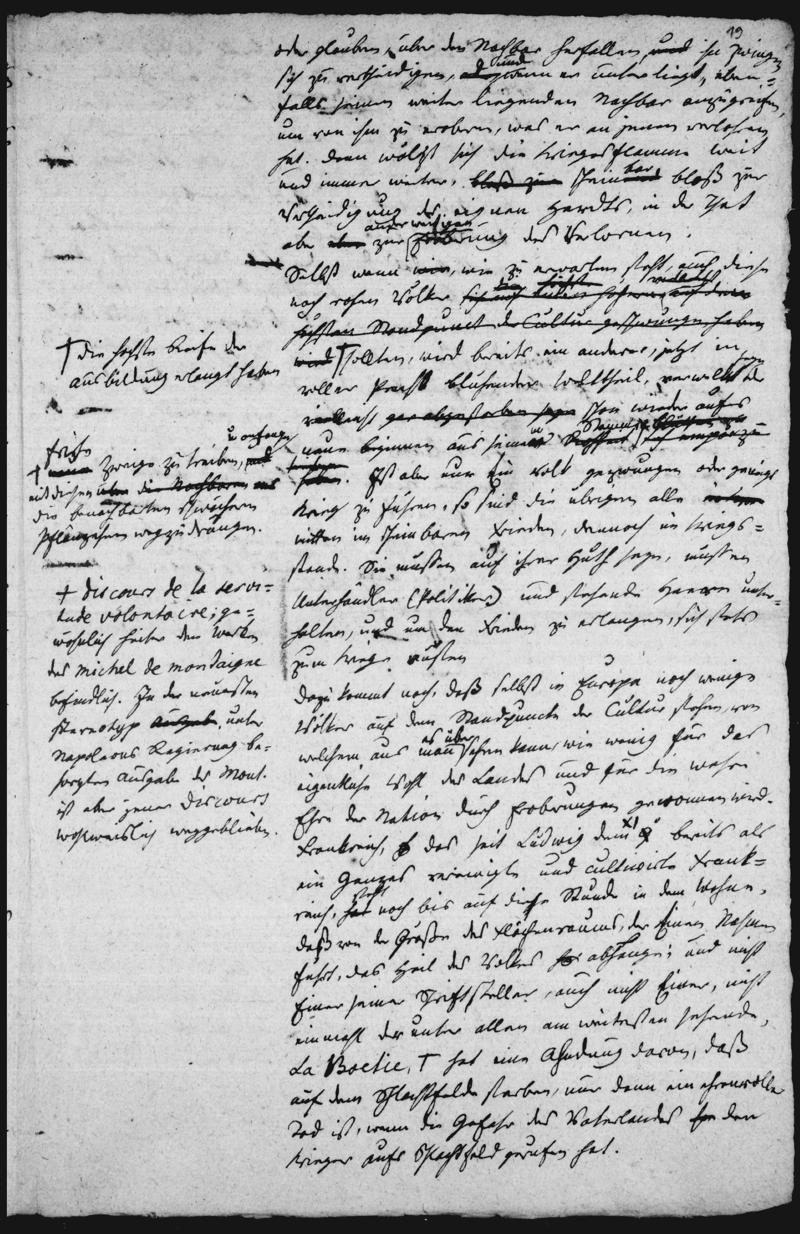 19
oder glauben, über den Nachbar herfallen, und ihn zwingen
sich zu vertheidigen, und wenn er unterliegt, eben=
falls seinen weiter liegenden Nachbar anzugreifen,
um von ihm zu erobern, was er an jenen verlohren
hat. Dann wälzt sich die Kriegesflamme weit
und immer weiter, bloß zur scheinbar bloß zur
Vertheidigung des eignen Heerdts, in der That
aber aber zur anderweitigen Eroberung des Verlornen.
Selbst wenn wir, wie zu erwarten steht, auch diese
noch rohen Völker
höchsten Standpunct der Cultur geschwungen haben
wird † sollten, wird bereits ein anderer, jetzt in
voller Pracht blühender Welttheil, verwelkt seyn oder
vielleicht gar abgestorben seyn schon wieder aufs
neue beginnen aus seinem Stamme
haben. Ist aber nur Ein Volk gezwungen oder geneigt
Krieg zu führen, so sind die übrigen alle
mitten im scheinbaren Frieden, dennoch im Kriegs=
stande. Sie müssen auf ihrer Huth seyn, müssen
Unterhändler (Politiker) und stehende Heere unter=
halten, und um den Frieden zu erlangen, sich stets
zum Kriege rüsten
Dazu kommt noch, daß selbst in Europa noch wenige
Völker auf dem Standpuncte der Cultur stehen, von
welchem aus man es übersehen kann, wie wenig für das
eigentliche Wohl des Landes und für die wahre
Ehre der Nation durch Eroberungen gewonnen wird.
Frankreich, das seit Ludwig dem XI bereits als
ein Ganzes vereinigte und cultivirte Frank=
reich, steht noch bis auf diese Stunde in dem Wahne,
daß von der Größe des Flächenraums, der Einen Nahmen
führt, das Heil des Volkes abhange; und nicht
Einer seiner Schriftsteller, auch nicht Einer, nicht
einmahl der unter allen am weitesten sehende,
La Boetie, † hat eine Ahndung davon, daß
auf dem Schlachtfelde sterben, nur dann ein ehrenvoller
Tod ist, wenn die Gefahr des Vaterlandes den
Krieger aufs Schlachtfeld gerufen hat.
† die höchste Reife der
Ausbildung erlangt haben
† frische Zweige zu treiben, u anfangen
mit diesen
die benachbarten schwächern
Pflänzchen wegzudrängen.
† discours de la servi=
tude volontaire; ge=
wöhnlich hinter den Werken
des Michel de Montaigne
befindlich. In der neuesten
stereotyp Ausgabe, unter
Napoleons Regierung be=
sorgten Ausgabe des Mont.
ist aber jener Discours
wohlweislich weggeblieben.